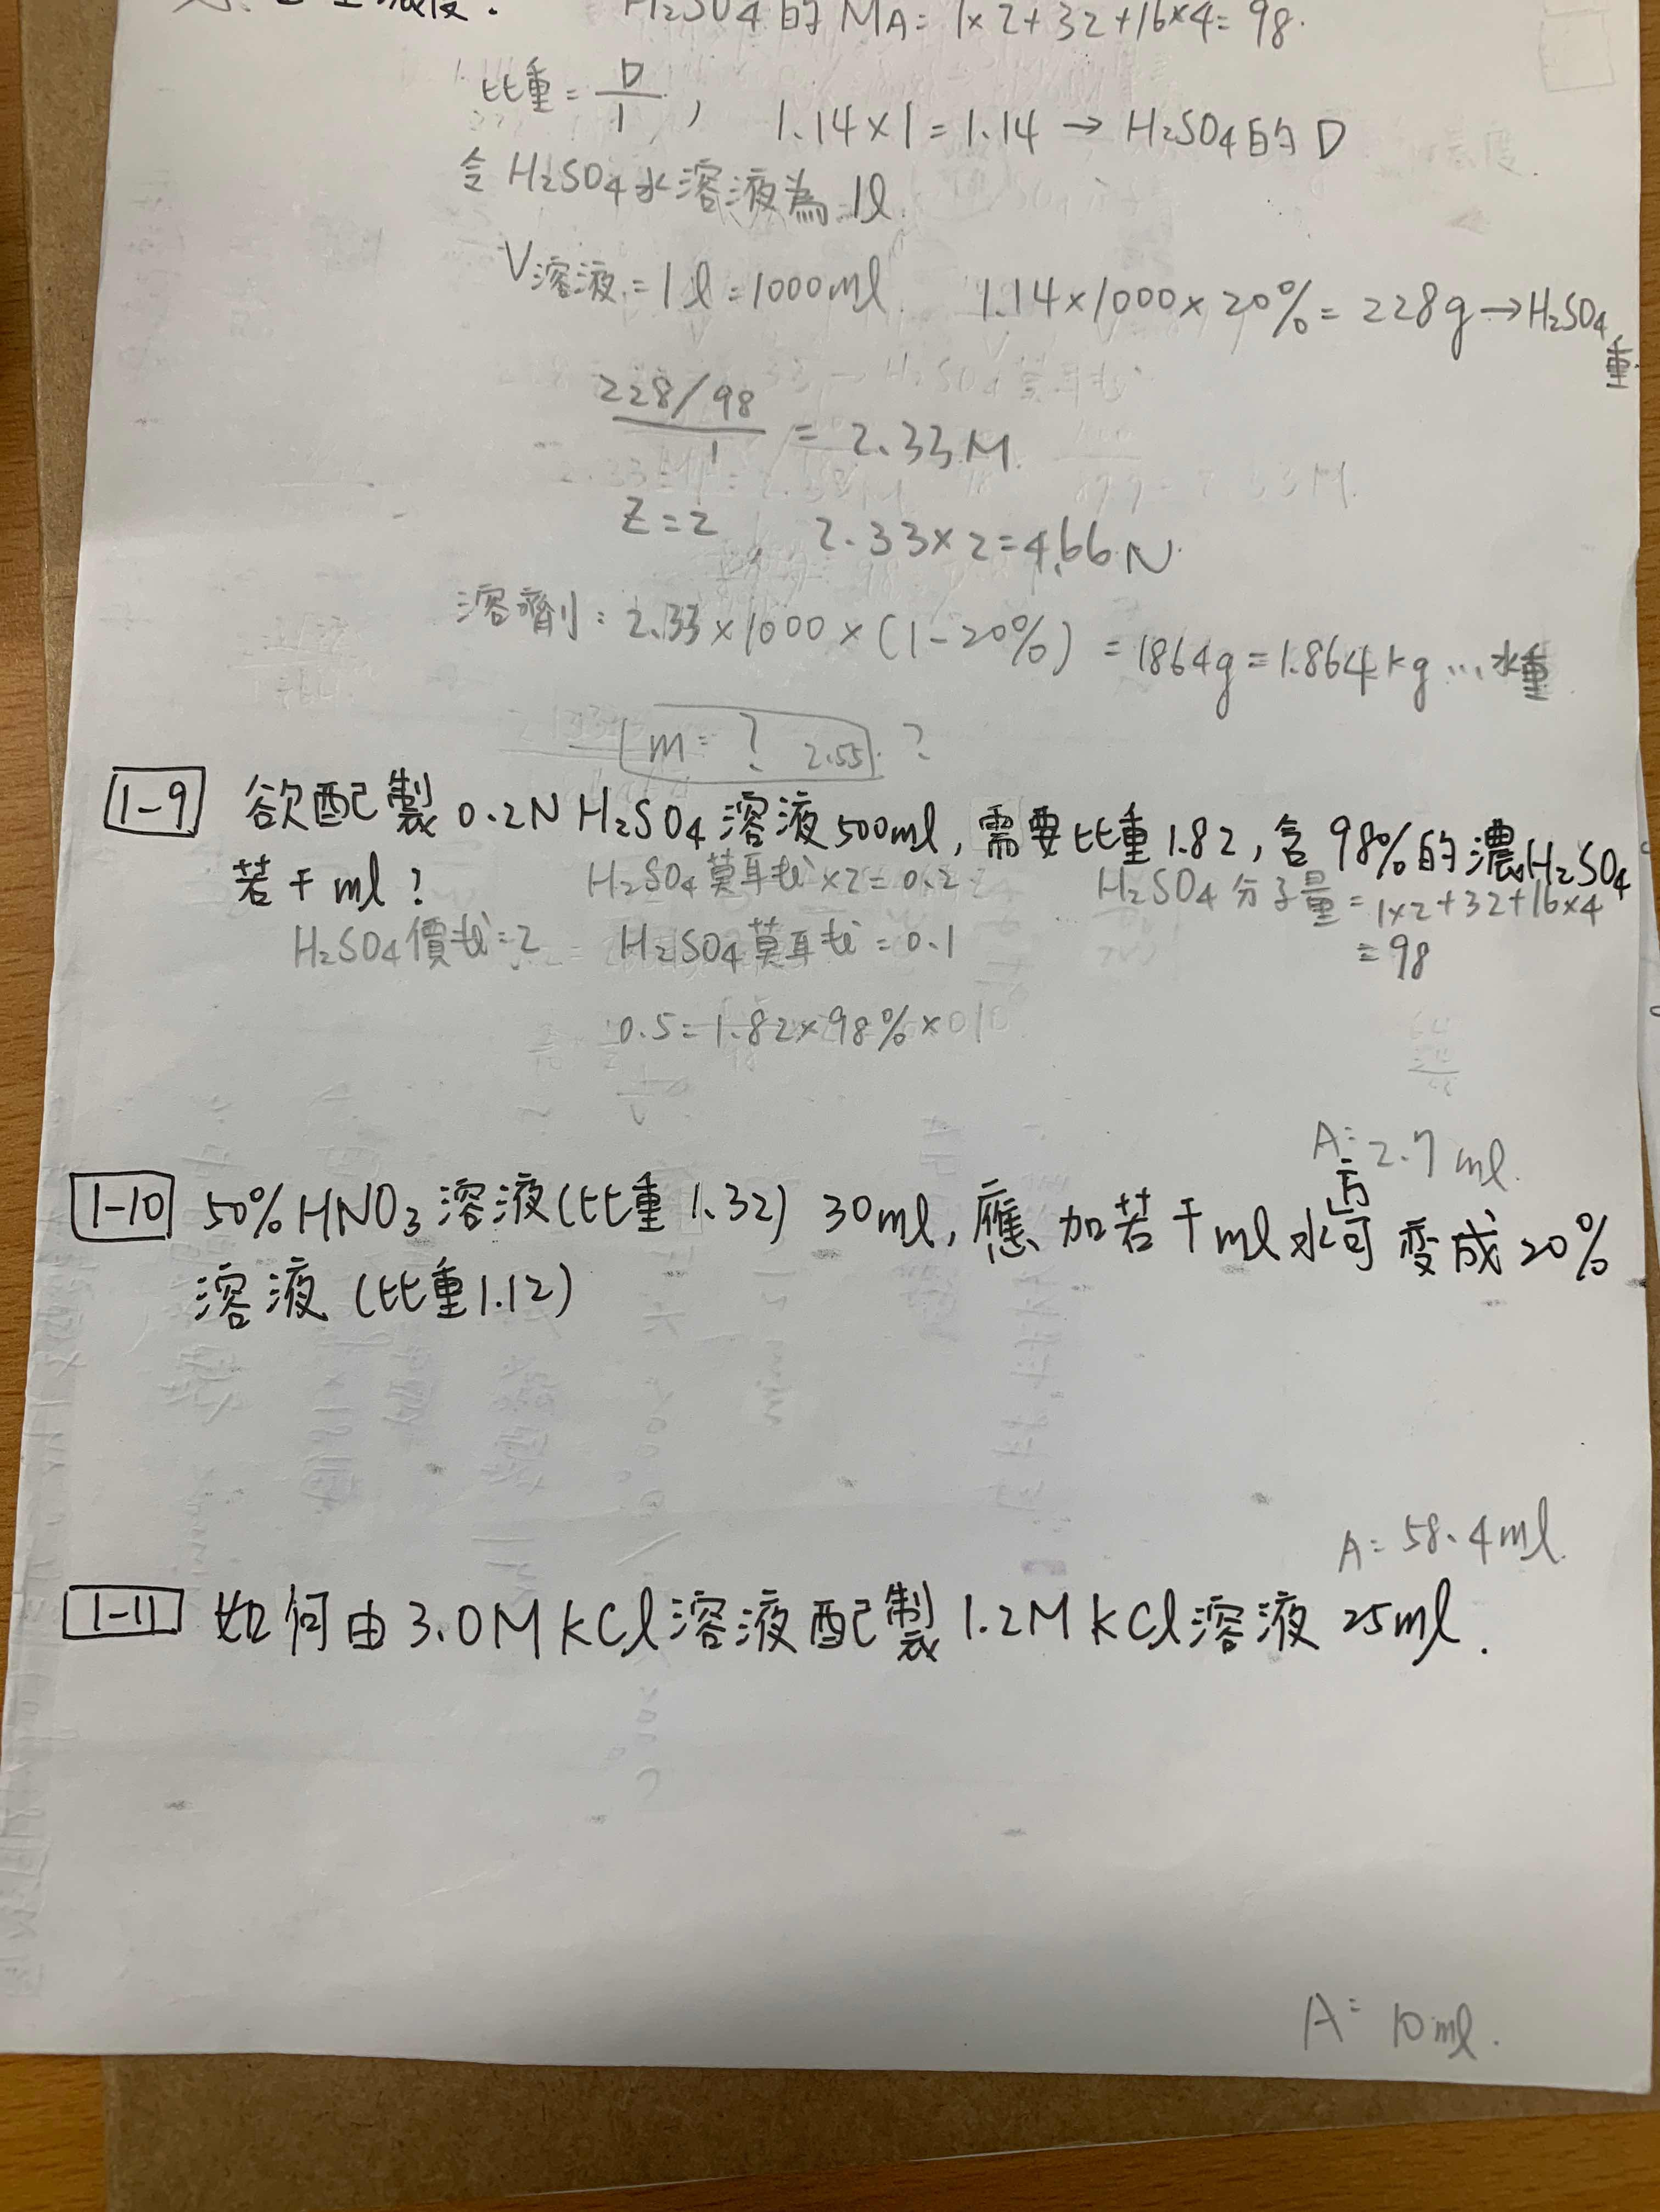 H2SO4的 MA = 1×2+32+16×4=98.
比重 = D/1 , 1.14×1=1.14 → H2SO4的 D
令 H2SO4水溶液為 1l.
V溶液 = 1l = 1000ml 1.14×1000×20% = 228g → H2SO4重
(228/98)/1 = 2.33M.
Z=2 , 2.33×2=4.66N.
溶劑: 2.33×1000×(1-20%) = 1864g = 1.864kg ... 水重
m = ? 2.55 . ?
1-9 欲配製 0.2N H2SO4溶液 500ml, 需要比重 1.82, 含 98%的濃H2SO4
若干 ml ?
H2SO4莫耳数×2=0.2 H2SO4分子量 = 1×2+32+16×4
H2SO4價数=2 H2SO4莫耳数=0.1 = 98
0.5=1.82×98%×
A= 2.7 ml.
1-10 50% HNO3溶液(比重 1.32) 30ml, 應加若干 ml 水方可変成 20%
溶液 (比重1.12)
A= 58.4ml.
1-11 如何由 3.0M KCl溶液配製 1.2M KCl溶液 25ml.
A= 10ml.